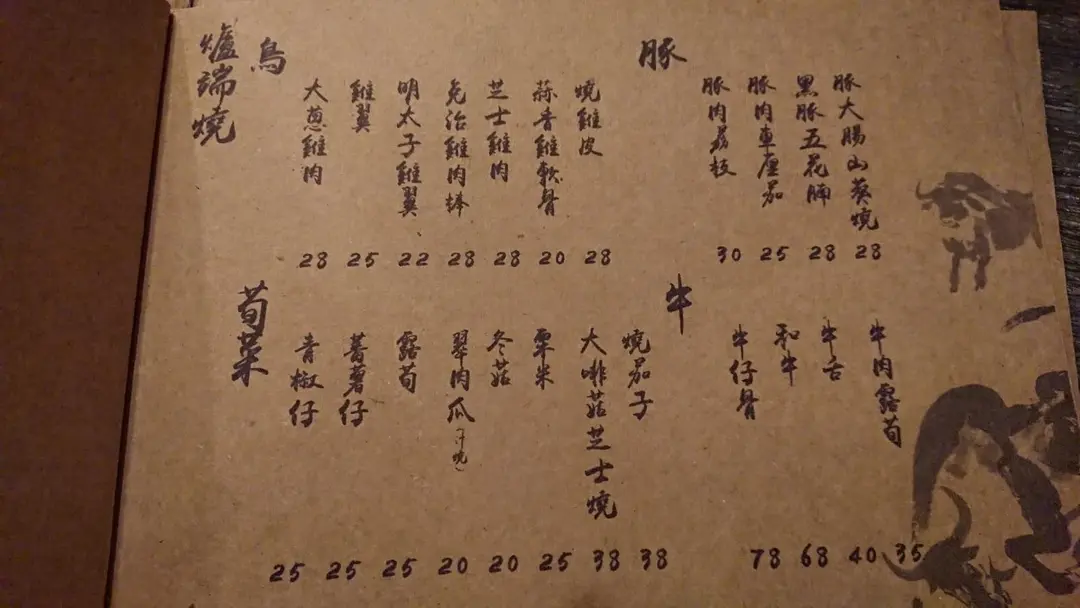 爐端燒
鳥
大蔥雞肉
28
雞翼
25
明太子雞翼
22
免治雞肉棒
28
芝士雞肉
28
蒜香雞軟骨
20
燒雞皮
28
豚
豚肉荔枝
30
豚肉車厘茄
25
黑豚五花腩
28
豚大腸山葵燒
28
荀菜
青椒仔
25
薯仔
25
露荀
25
翠肉瓜
20
冬菇
20
粟米
25
大啡菇芝士燒
38
燒茄子
38
牛
牛仔骨
78
和牛
68
牛舌
40
牛肉露荀
35